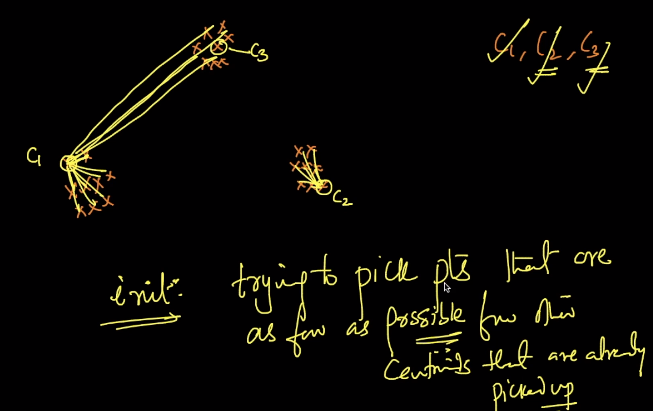 C1, C2, C3
C3
C1
C2
init: trying to pick pts that are
as far as possible from the
centroids that are already
picked up